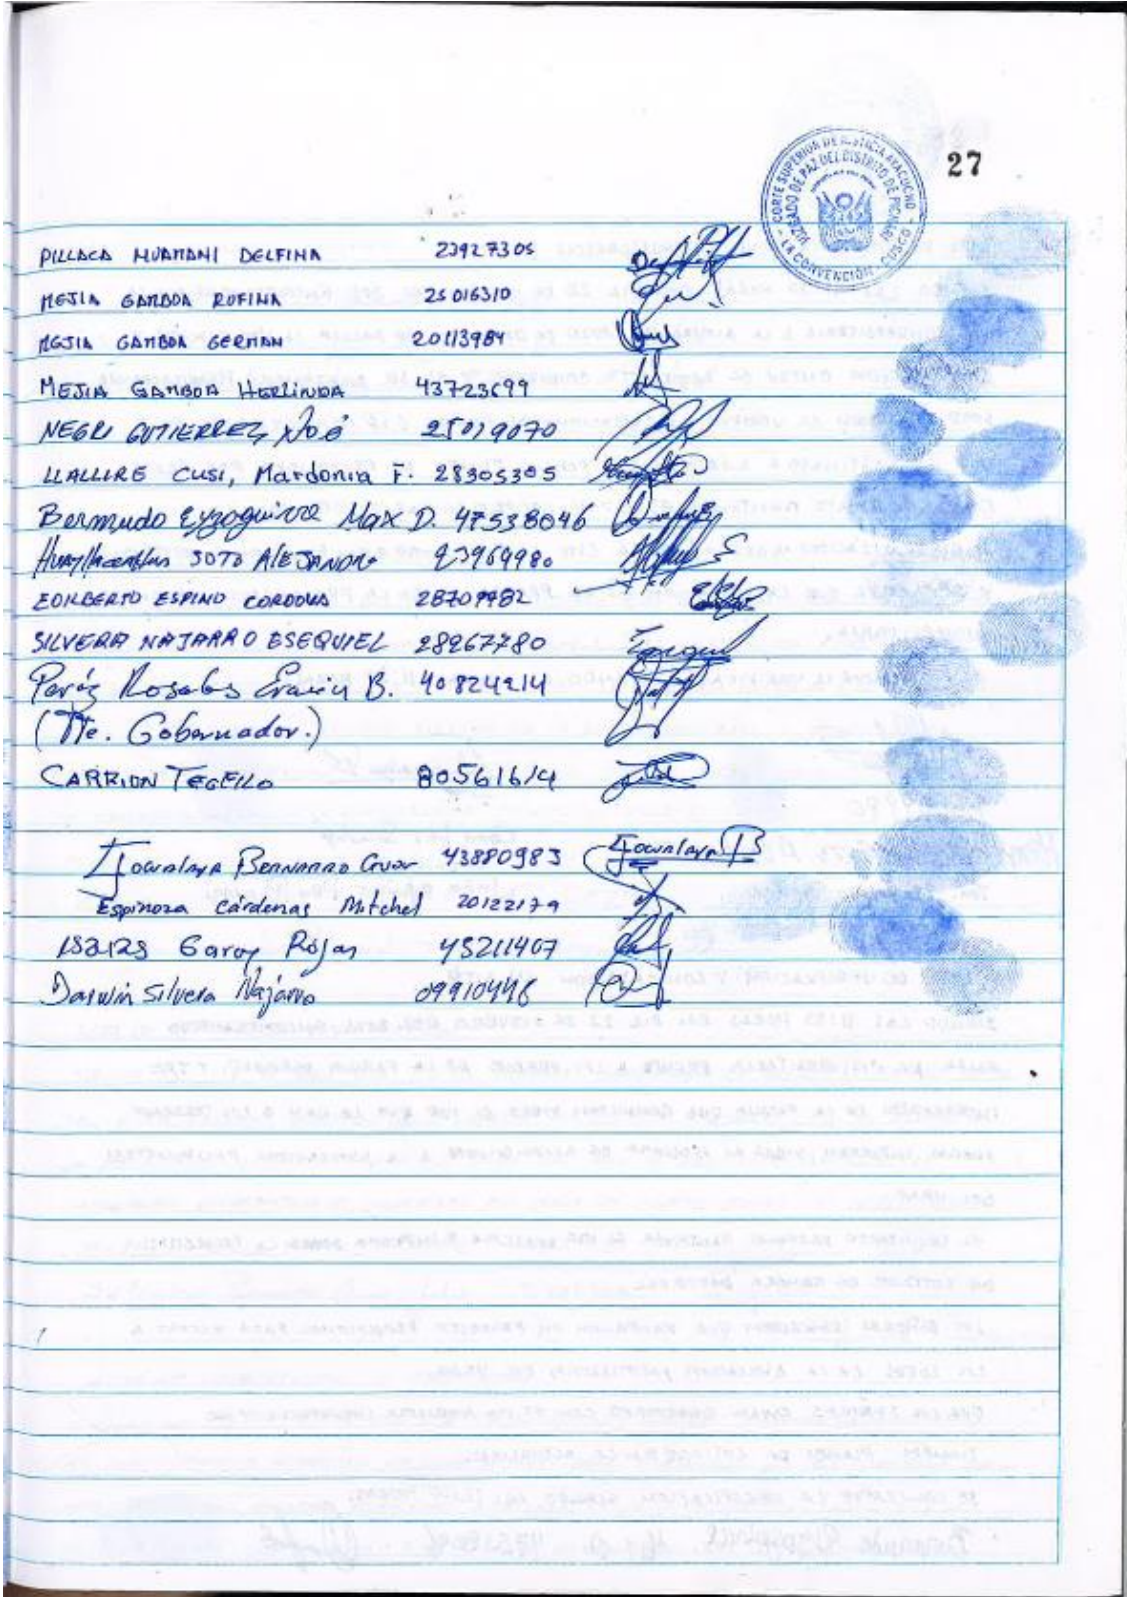 CORTE SUPERIOR DE JUSTICIA AYACUCHO
JUZGADO DE PAZ DEL DISTRITO DE PICHARI
LA CONVENCIÓN - CUSCO
27
PILLACA HUAMANI DELFINA 23927305
MEJIA GAMBOA RUFINA 25016310
MEJIA GAMBOA GERMAN 20113984
MEJIA GAMBOA HERLINDA 43723699
NEGRI GUTIERREZ, NOÉ 25019070
LLALLIRE CUSI, Mardonia F. 28305305
Bermudo Eyzaguirre Max D. 47538046
SOTO ALEJANDRO 23969980
EDILBERTO ESPINO CORDOVA 28709982
SILVERA NAJARRO ESEQUIEL 28267780
Peréz Rosales B. 40824214
(Tte. Gobernador.)
CARRION TEOFILO 80561614
BERNARDO 43880983
Espinoza Cárdenas Mitchel 20122179
ISAIAS Garay Rojas 45211407
Darwin Silvera Najarro 09910446